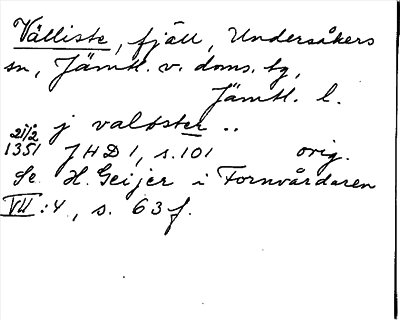 Vålliste, fjäll, Undersåkers
sn, Jämtl. v. doms. tg,
Jämtl. l.
21/2 j valöster ..
1351 JHD 1, s. 101 orig.
Se H. Geijer i Fornvårdaren
VII:4, s. 63 f.